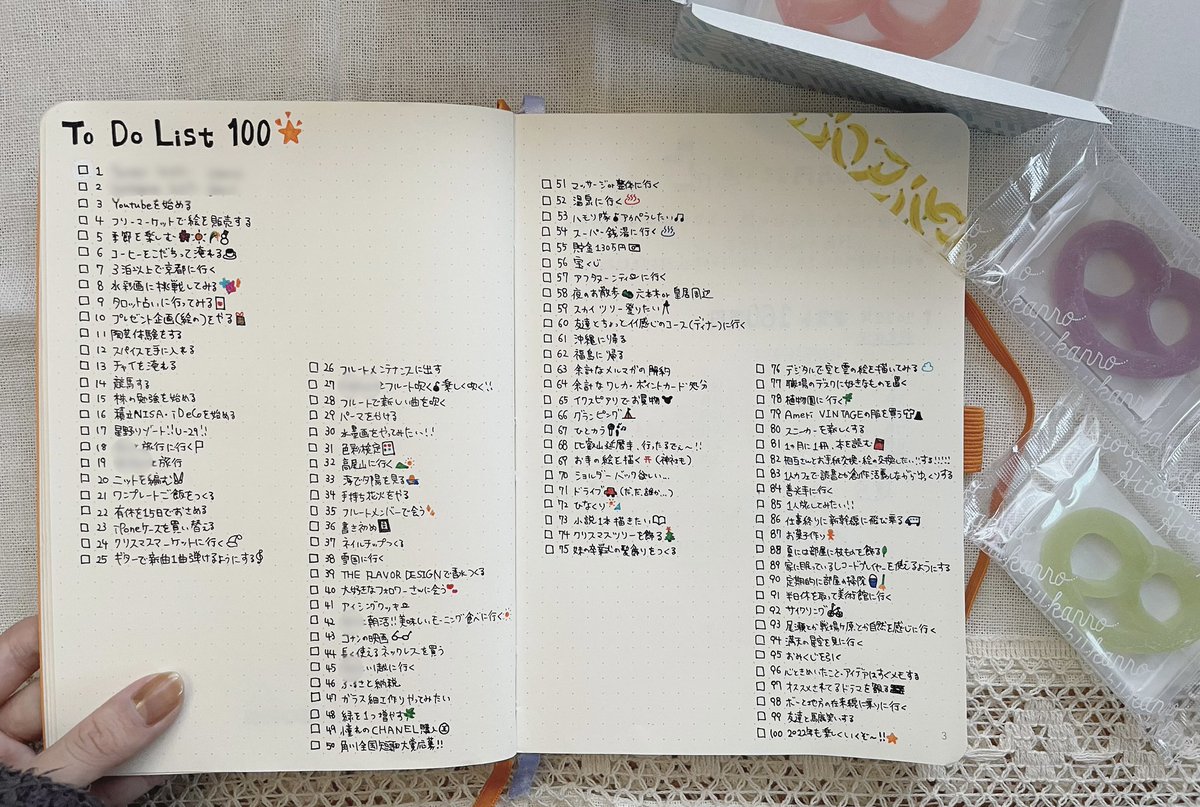 To Do List 100
1
2
3 Youtubeを始める
4 フリーマーケットで絵を販売する
5 季節を楽しむ
6 コーヒーをこだって淹れる
7 3泊以上で京都に行く
8 水彩画に挑戦してみる
9 タロット占いに行ってみる
10 プレゼント企画(絵の)をやる
11 陶芸体験をする
12 スパイスを手に入れる
13 チャイを淹れる
14 競馬する
15 株の勉強を始める
16 積立NISA・iDeCoを始める
17 星野リゾート!!U-29!!
18 旅行に行く
19 と旅行
20 ニットを編む
21 ワンプレートご飯をつくる
22 有休を15日でおさめる
23 iPoneケースを買い替える
24 クリスマスマーケットに行く
25 ギターで新曲1曲弾けるようにする
26 フルートメンテナンスに出す
27 とフルート吹く 楽しく吹く!!
28 フルートで新しい曲を吹く
29 パーマをかける
30 水墨画をやってみたい!!
31 色彩検定
32 高尾山に行く
33 海で夕陽を見る
34 手持ち花火をやる
35 フルートメンバーで会う
36 書き初め
37 ネイルチップつくる
38 雪国に行く
39 THE FLAVOR DESIGNで香水つくる
40 大好きなフォロワーさんに会う
41 アイシングクッキー
42 朝活!!美味しいモーニング食べに行く
43 コナンの映画
44 長く使えるネックレスを買う
45 川越に行く
46 ふるさと納税
47 ガラス細工作りやってみたい
48 緑を1つ増やす
49 憧れのCHANEL購入
50 角川全国短歌大賞応募!!
51 マッサージor整体に行く
52 温泉に行く
53 ハモリ隊 アカペラしたい
54 スーパー銭湯に行く
55 貯金130万円
56 宝くじ
57 アフタヌーンティーに行く
58 夜のお散歩 六本木or皇居周辺
59 スカイツリー登りたい
60 友達とちょっとイイ感じのコース(ディナー)に行く
61 沖縄に帰る
62 福島に帰る
63 余計なメルマガの解約
64 余計なクレカ・ポイントカード処分
65 イクスピアリでお買物
66 グランピング
67 ひとカラ
68 比叡山延暦寺、行ったるでぇ〜!!
69 お寺の絵を描く(神社も)
70 ショルダーバック欲しい…
71 ドライブ(だ、だ、誰か…)
72 ひなくり
73 小説1本描きたい
74 クリスマスツリーを飾る
75 妹の卒業式の髪飾りをつくる
76 デジタルで空と雲の絵を描いてみる
77 職場のデスクに好きなものを置く
78 植物園に行く
79 Ameri VINTAGEの服を買う
80 スニーカーを新しくする
81 1ヵ月に1冊、本を読む
82 担当さんとお手紙交換・絵の交換したい!!する!!!!!
83 1人カフェで読書とか創作活動しながら出くりする
84 善光寺に行く
85 1人旅してみたい!!
86 仕事終りに新幹線に飛び乗る
87 お菓子作り
88 夏には部屋に枝ものを飾る
89 家に眠っているレコードプレイヤーを使えるようにする
90 定期的に部屋の掃除
91 半日休を取って美術館に行く
92 サイクリング
93 尾瀬とか戦場ヶ原とか自然を感じに行く
94 満天の星空を見に行く
95 おみくじを引く
96 心ときめいたこと、アイデアはすぐメモする
97 オススメされてるドラマを観る
98 ボーと地方の在来線に乗りに行く
99 友達と馬鹿笑いする
100 2022年も楽しくいくぞ〜!!
3
kanro
by kanro
Hitotubu
kanro
by kanro